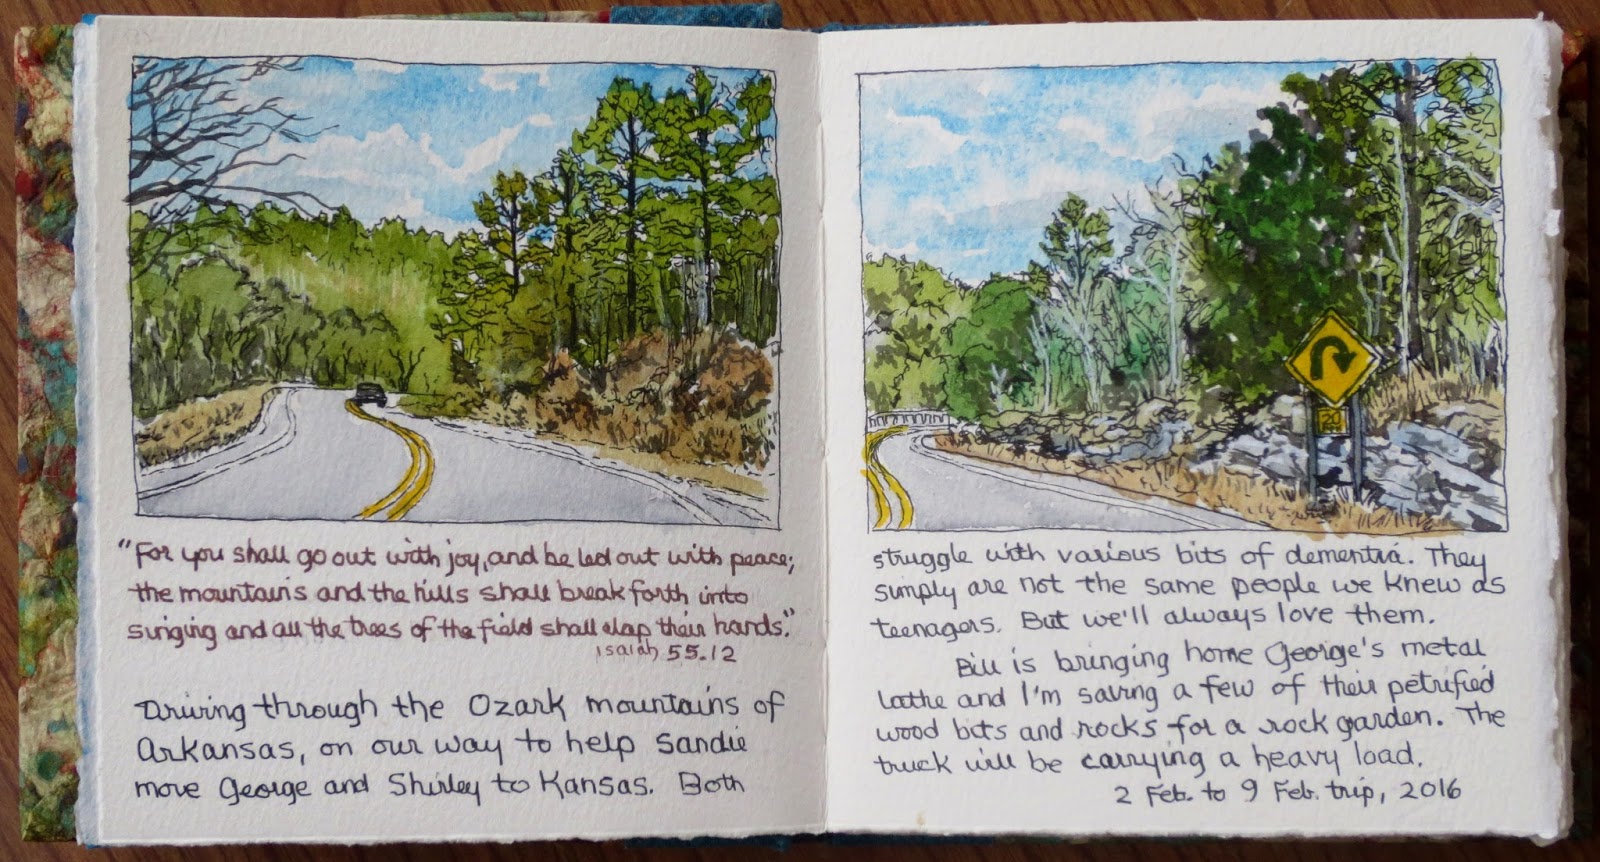 "For you shall go out with joy, and be led out with peace;
the mountains and the hills shall break forth into
singing and all the trees of the field shall clap their hands."
Isaiah 55.12
Driving through the Ozark mountains of
Arkansas, on our way to help Sandie
move George and Shirley to Kansas. Both
20
struggle with various bits of dementia. They
simply are not the same people we knew as
teenagers. But we'll always love them.
Bill is bringing home George's metal
lathe and I'm saving a few of their petrified
wood bits and rocks for a rock garden. The
truck will be carrying a heavy load.
2 Feb. to 9 Feb. trip, 2016